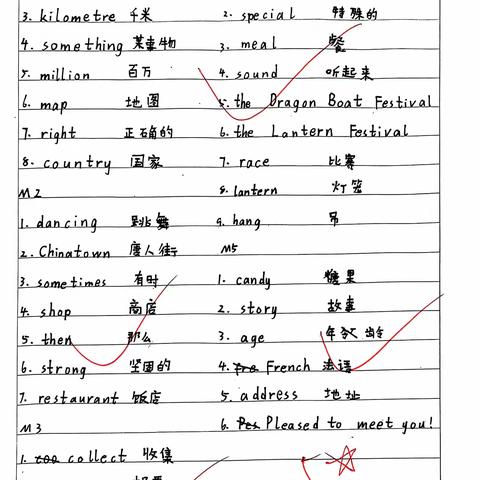 3. kilometre 千米
4. something 某事物
5. million 百万
6. map 地图
7. right 正确的
8. country 国家
M2
1. dancing 跳舞
2. Chinatown 唐人街
3. sometimes 有时
4. shop 商店
5. then 那么
6. strong 坚固的
7. restaurant 饭店
M3
1. collect 收集
2. special 特殊的
3. meal 餐
4. sound 听起来
5. the Dragon Boat Festival
6. the Lantern Festival
7. race 比赛
8. lantern 灯笼
9. hang 吊
M5
1. candy 糖果
2. story 故事
3. age 年龄
4. French 法语
5. address 地址
6. Pleased to meet you!